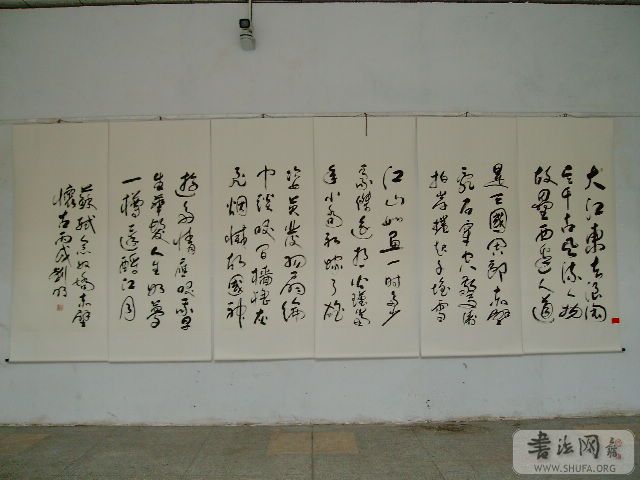 大江東去浪淘
尽千古風流人物
故壘西邊人道
是三國周郎赤壁
亂石穿空驚濤
拍岸捲起千堆雪
江山如畫一時多少
豪傑遙想公瑾當
年小喬初嫁了雄
姿英發羽扇綸
巾談笑間檣櫓灰
飛烟滅故國神
遊多情應笑我早
生華髮人生如夢
一樽還酹江月
蘇軾念奴嬌赤壁
懷古丙戌劉明
书法网
WWW.SHUFA.ORG